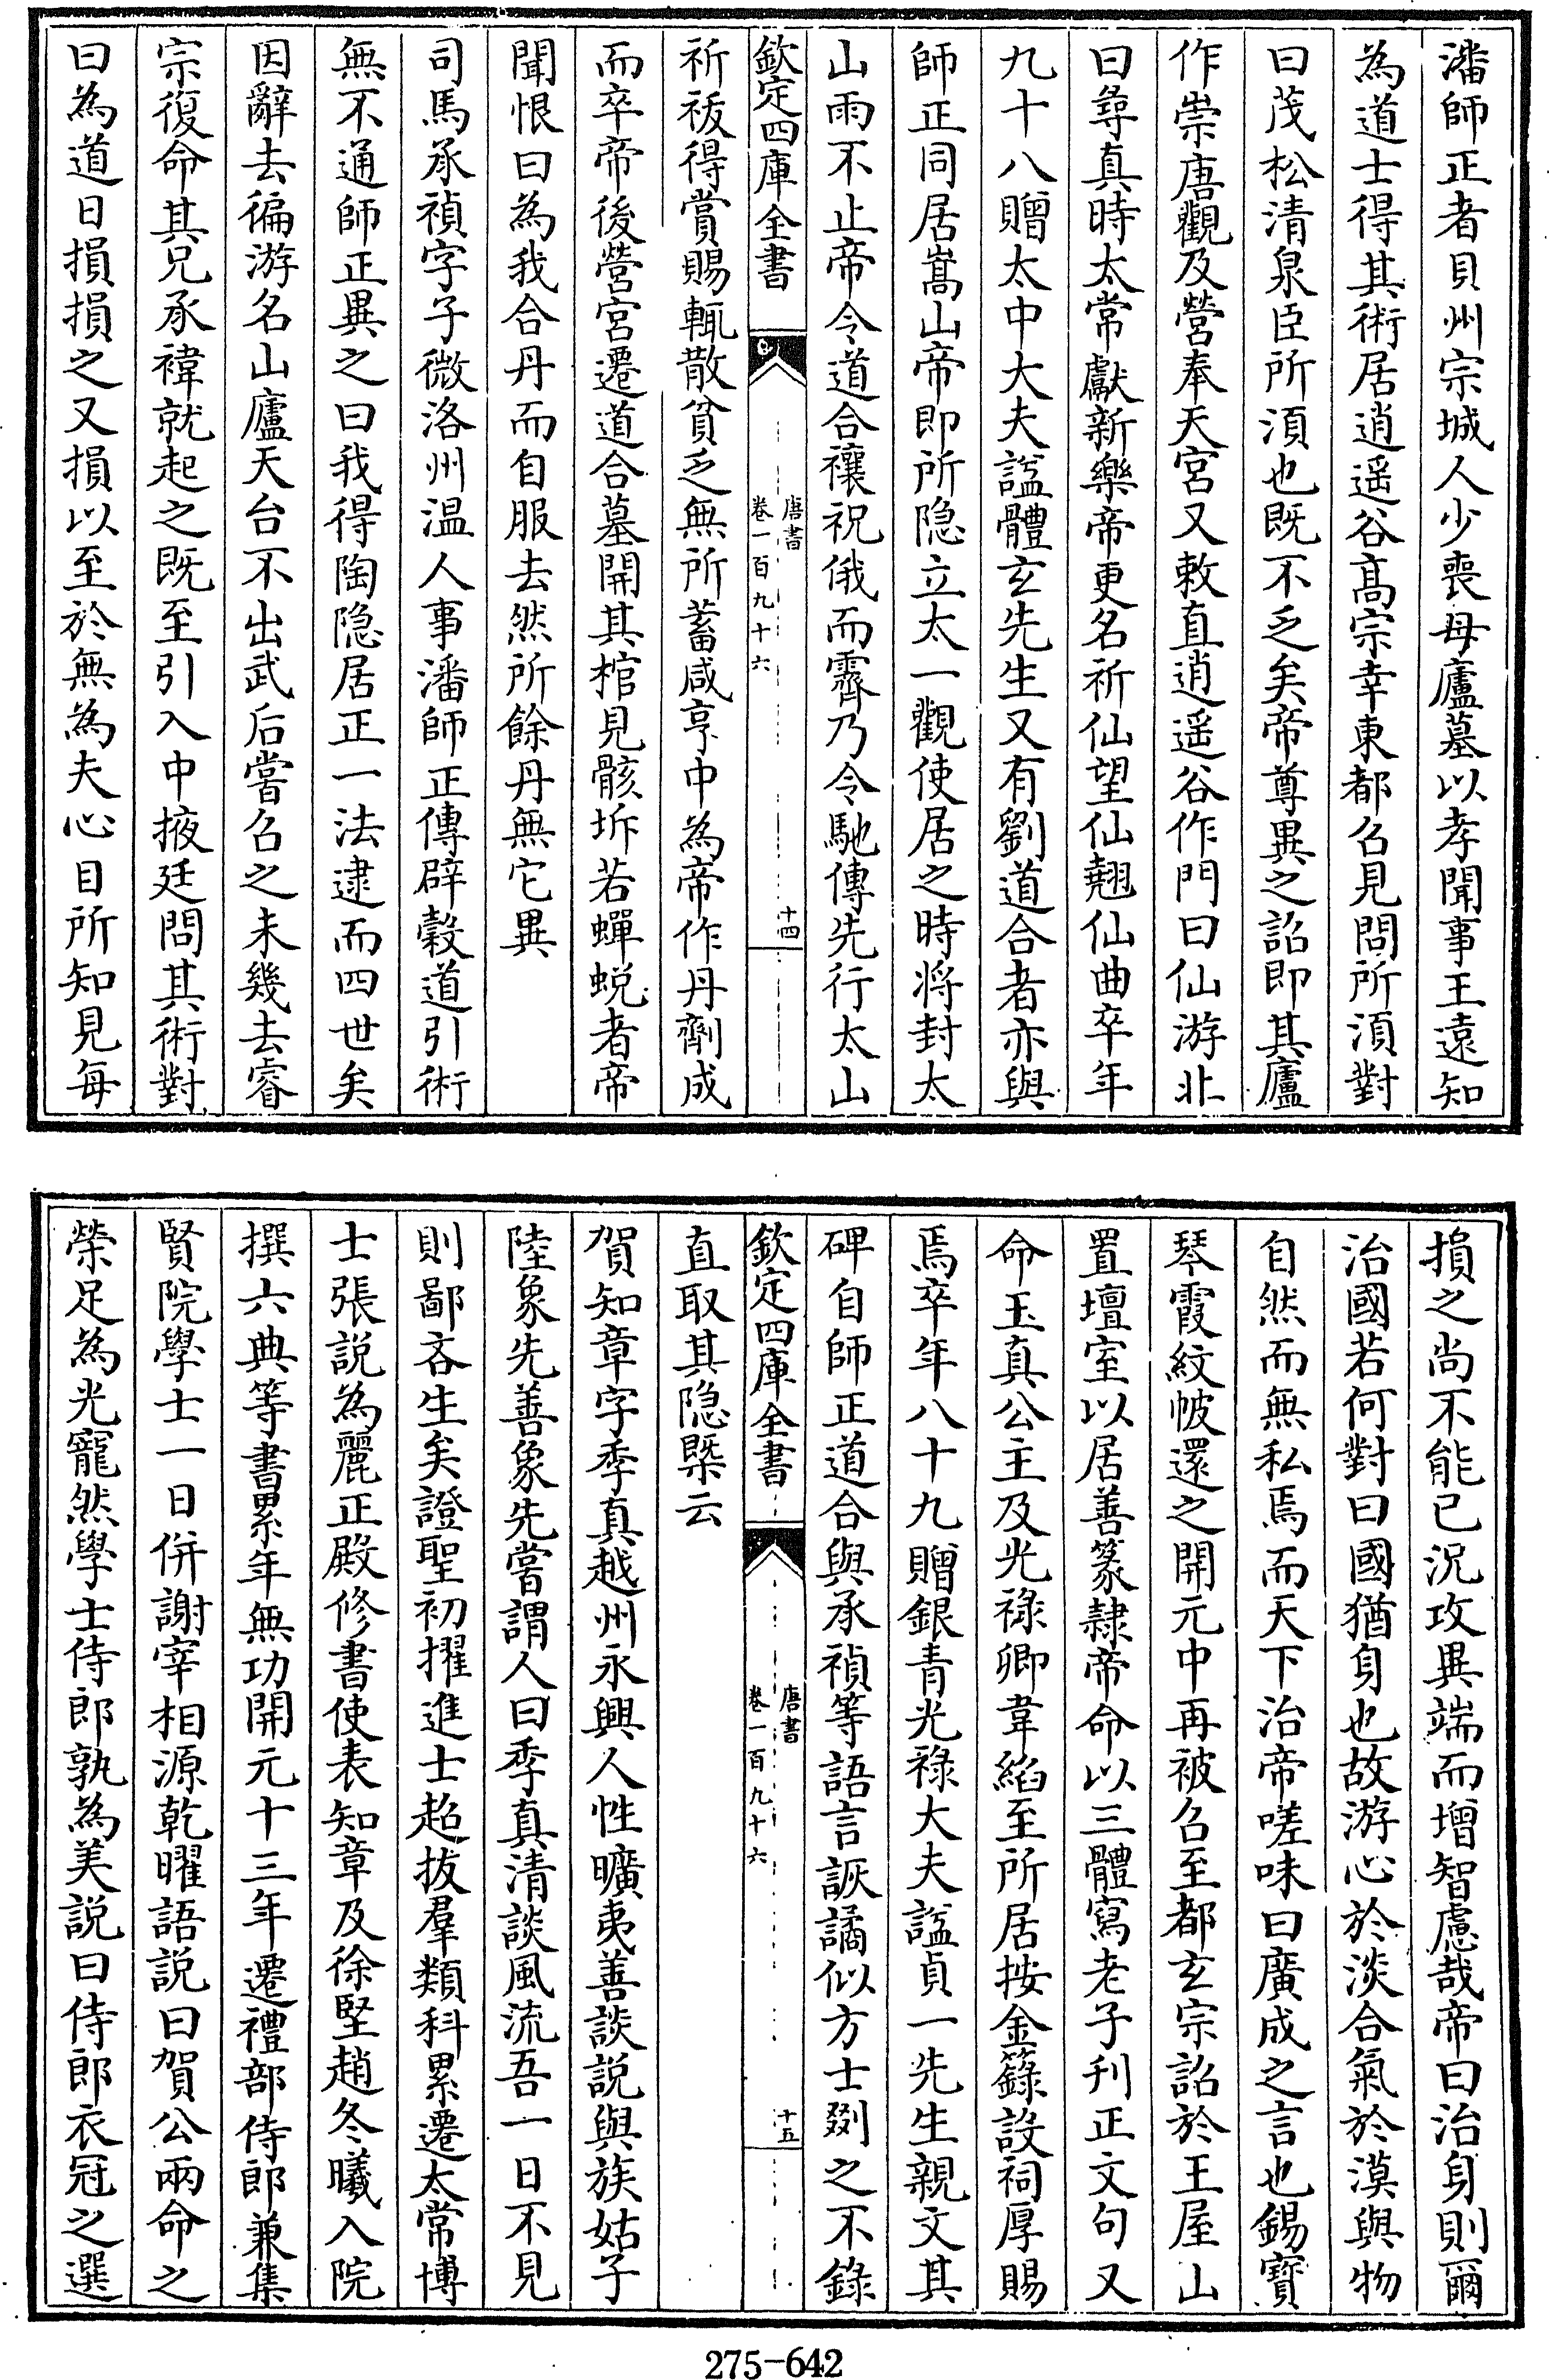 潘師正者貝州宗城人少喪母廬墓以孝聞事王遠知
為道士得其術居逍遥谷髙宗幸東都召見問所湏對
曰茂松清泉臣所湏也既不乏矣帝尊異之詔即其廬
作崇唐觀及營奉天宮又敕直逍遥谷作門曰仙游北
曰尋真時太常獻新樂帝更名祈仙望仙翹仙曲卒年
九十八贈太中大夫諡體玄先生又有劉道合者亦與
師正同居嵩山帝即所隐立太一觀使居之時將封太
山雨不止帝令道合禳祝俄而霽乃令馳傳先行太山
欽定四庫全書
唐書
卷一百九十六
十四
祈祓得賞賜輒散貧乏無所蓄咸亨中為帝作丹劑成
而卒帝後營宮遷道合墓開其棺見骸坼若蟬蜕者帝
聞恨曰為我合丹而自服去然所餘丹無它異
司馬承禎字子微洛州温人事潘師正傳辟穀道引術
無不通師正異之曰我得陶隐居正一法逮而四世矣
因辭去徧游名山廬天台不出武后嘗召之未幾去睿
宗復命其兄承禕就起之既至引入中掖廷問其術對
曰為道日損損之又損以至於無為夫心目所知見每
損之尚不能已況攻異端而增智慮哉帝曰治身則爾
治國若何對曰國猶身也故游心於淡合氣於漠與物
自然而無私焉而天下治帝嗟味曰廣成之言也錫寶
琴霞紋帔還之開元中再被召至都玄宗詔於王屋山
置壇室以居善篆隷帝命以三體寫老子刋正文句又
命玉真公主及光祿卿韋縚至所居按金籙設祠厚賜
焉卒年八十九贈銀青光祿大夫諡貞一先生親文其
碑自師正道合與承禎等語言詼譎似方士剟之不錄
欽定四庫全書
唐書
卷一百九十六
十五
直取其隐槩云
賀知章字季真越州永興人性曠夷善談説與族姑子
陸象先善象先嘗謂人曰季真清談風流吾一日不見
則鄙吝生矣證聖初擢進士超拔羣類科累遷太常博
士張説為麗正殿修書使表知章及徐堅趙冬曦入院
撰六典等書累年無功開元十三年遷禮部侍郎兼集
賢院學士一日併謝宰相源乾曜語説曰賀公兩命之
榮足為光寵然學士侍郎孰為美説曰侍郎衣冠之選
275-642